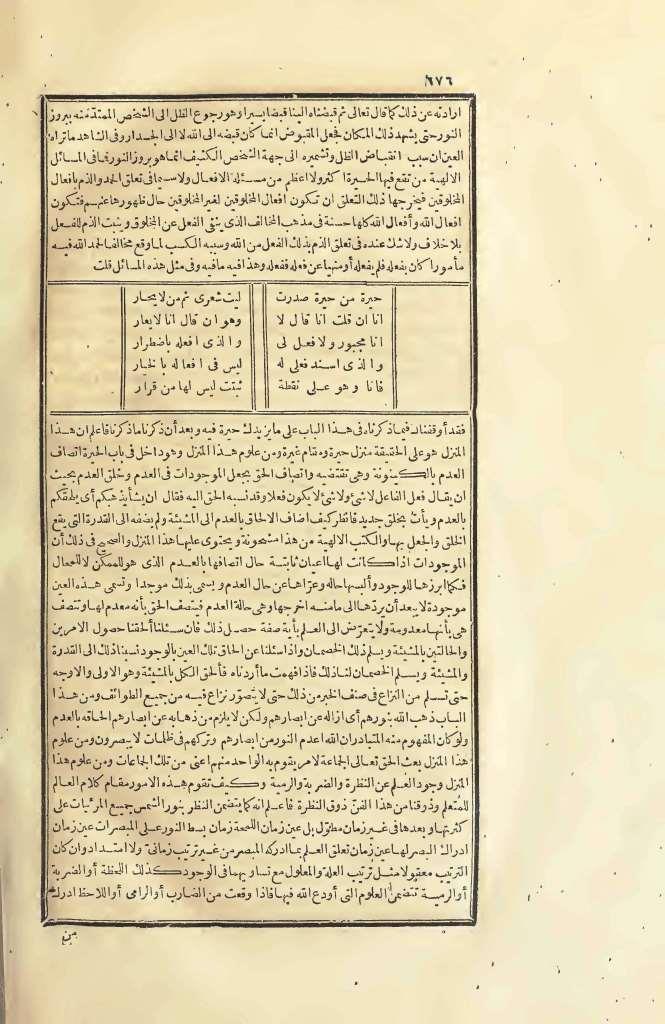 ٦٧٦
ارادته عن ذلك كما قال تعالى ثم قبضناه الينا قبضا يسيرا وهو رجوع الظل الى الشخص الممتد منه ببروز
النور حتى يشهد ذلك المكان فجعل المقبوض انما كان قبضه الى الله لا الى الجدار وفى الشاهد ما تراه
العين ان سبب انقباض الظل وتشميره الى جهة الشخص الكثيف انما هو بروز النور فما فى المسائل
الالهية من تقع فيها الحيرة اكثر ولا اعظم من مسئلة الافعال ولا سيما فى تعلق الحمد والذم بافعال
المخلوقين فيخرجها ذلك التعلق ان تكون افعال المخلوقين لغير المخلوقين حال ظهورها عنهم فتكون
افعال الله وأفعال الله كلها حسنة فى مذهب المخالف الذى ينفى الفعل عن المخلوق ويثبت الذم للفعل
بلا خلاف ولا شك عنده فى تعلق الذم بذلك الفعل من الله وسببه الكسب لما وقع مخالفا لحمد الله فيه
مأمورا كان بفعله فلم يفعله أو منهيا عن فعله ففعله وهذا فيه ما فيه وفى مثل هذه المسائل قلت
حيرة من حيرة صدرت ليت شعرى ثم من لا يحار
انا ان قلت انا قال لا وهو ان قال انا لا يعار
انا مجبور ولا فعل لى والذى افعله باضطرار
والذى اسند فعلى له ليس فى افعاله بالخيار
فانا وهو على نقطة ثبتت ليس لها من قرار
فقد أوقفناك فيما ذكرناه فى هذا الباب على ما يزيدك حيرة فيه وبعد أن ذكرنا ما ذكرنا فاعلم ان هذا
المنزل هو على الحقيقة منزل حيرة ومقام غيرة ومن علوم هذا المنزل وهو داخل فى باب الحيرة اتصاف
العدم بالكينونة وهى تقتضيه واتصاف الحق بجعل الموجودات فى العدم وخلق العدم بحيث
ان يقال فعل الفاعل لا شئ ولا شئ لا يكون فعلا وقد نسبه الحق اليه فقال ان يشأ يذهبكم أى يلحقكم
بالعدم ويأت بخلق جديد فانظر كيف اضاف الالحاق بالعدم الى المشيئة ولم يضفه الى القدرة التى يقع
الخلق والجعل بها والكتب الالهية من هذا مشحونة ويحتوى عليها هذا المنزل والصحيح فى ذلك أن
الموجودات اذا كانت لها أعيان ثابتة حال اتصافها بالعدم الذى هو للممكن لا للمحال
فكما ابرزها للوجود وألبسها حاله وعرّاها عن حال العدم ويسمى بذلك موجدا وتسمى هذه العين
موجودة لا يبعد أن يردّها الى ما منه اخرجها وهى حالة العدم فيتصف الحق بأنه معدم لها وتتصف
هى بأنها معدومة ولا يتعرّض الى العلم بأية صفة حصل ذلك فان سئلنا ألحقنا حصول الامرين
والحالتين بالمشيئة ويسلم ذلك الخصمان واذا سئلنا عن الحاق تلك العين بالوجود نسبنا ذلك الى القدرة
والمشيئة ويسلم الخصمان لنا ذلك فاذا فهمت ما أردناه فألحق الكل بالمشيئة وهو الاولى والاوجه
حتى تسلم من النزاع فى صنف الخبر من ذلك حتى لا يتصوّر نزاع فيه من جميع الطوائف ومن هذا
الباب ذهب الله بنورهم أى ازاله عن ابصارهم ولكن لا يلزم من ذهابه عن ابصارهم الحاقه بالعدم
ولو كان المفهوم منه المتبادر ان الله اعدم النور من ابصارهم وتركهم فى ظلمات لا يبصرون ومن علوم
هذا المنزل بعث الحق تعالى الجماعة لامر يقوم به الواحد منهم اعنى من تلك الجماعات ومن علوم هذا
المنزل وجود العلم عن النظرة والضربة والرمية وكيف تقوم هذه الامور مقام كلام العالم
للمتعلم وذوقنا من هذا الفنّ ذوق النظرة فاعلم انه كما يتضمن النظر بنور الشمس جميع المرئيات على
كثرتها وبعدها فى غير زمان مطوّل بل عين زمان اللمحة زمان بسط النور على المبصرات عين زمان
ادراك البصر لها عين زمان تعلق العلم بما ادركه المبصر من غير ترتيب زمانىّ ولا امتداد وان كان
الترتيب معقولا مثل ترتيب العلة والمعلول مع تساويهما فى الوجود كذلك اللحظة أو الضربة
أو الرمية تتضمن العلوم التى أودع الله فيها فاذا وقعت من الضارب أو الرامى أو اللاحظ ادرك